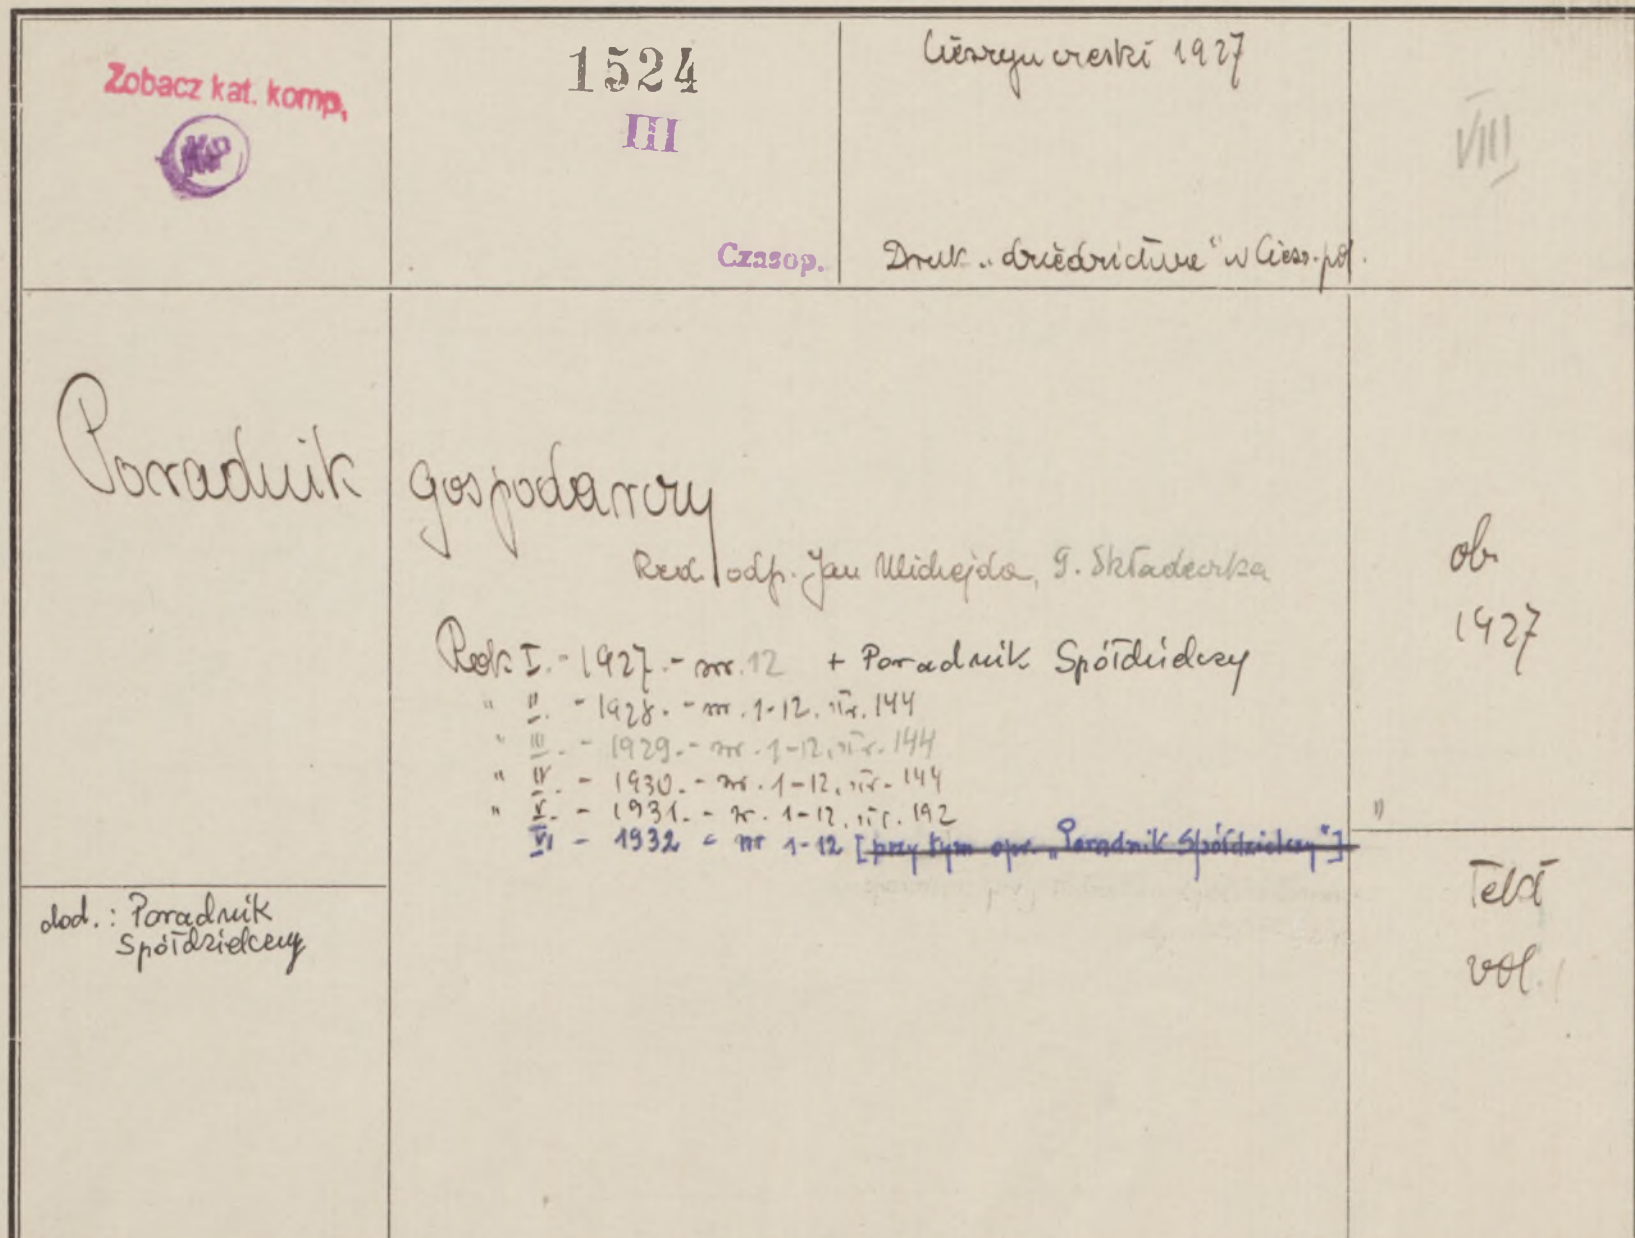 Zobacz kat. komp.
1524
III
Czasop.
Cieszyn czeski 1927
Druk. „dziedzictwa" w Ciesz. pol.
VIII
Poradnik gospodarczy
Red. odp. Jan Michejda, G. Składeczka
Rok I. - 1927. - nr. 12 + Poradnik Spółdzielczy
" II. - 1928. - nr. 1-12, str. 144
" III. - 1929. - nr. 1-12, str. 144
" IV. - 1930. - nr. 1-12, str. 144
" V. - 1931. - nr. 1-12, str. 192
VI - 1932 - nr 1-12 [przy tym opr. „Poradnik Spółdzielczy"]
ob.
1927
"
dod.: Poradnik
Spółdzielczy
vol.